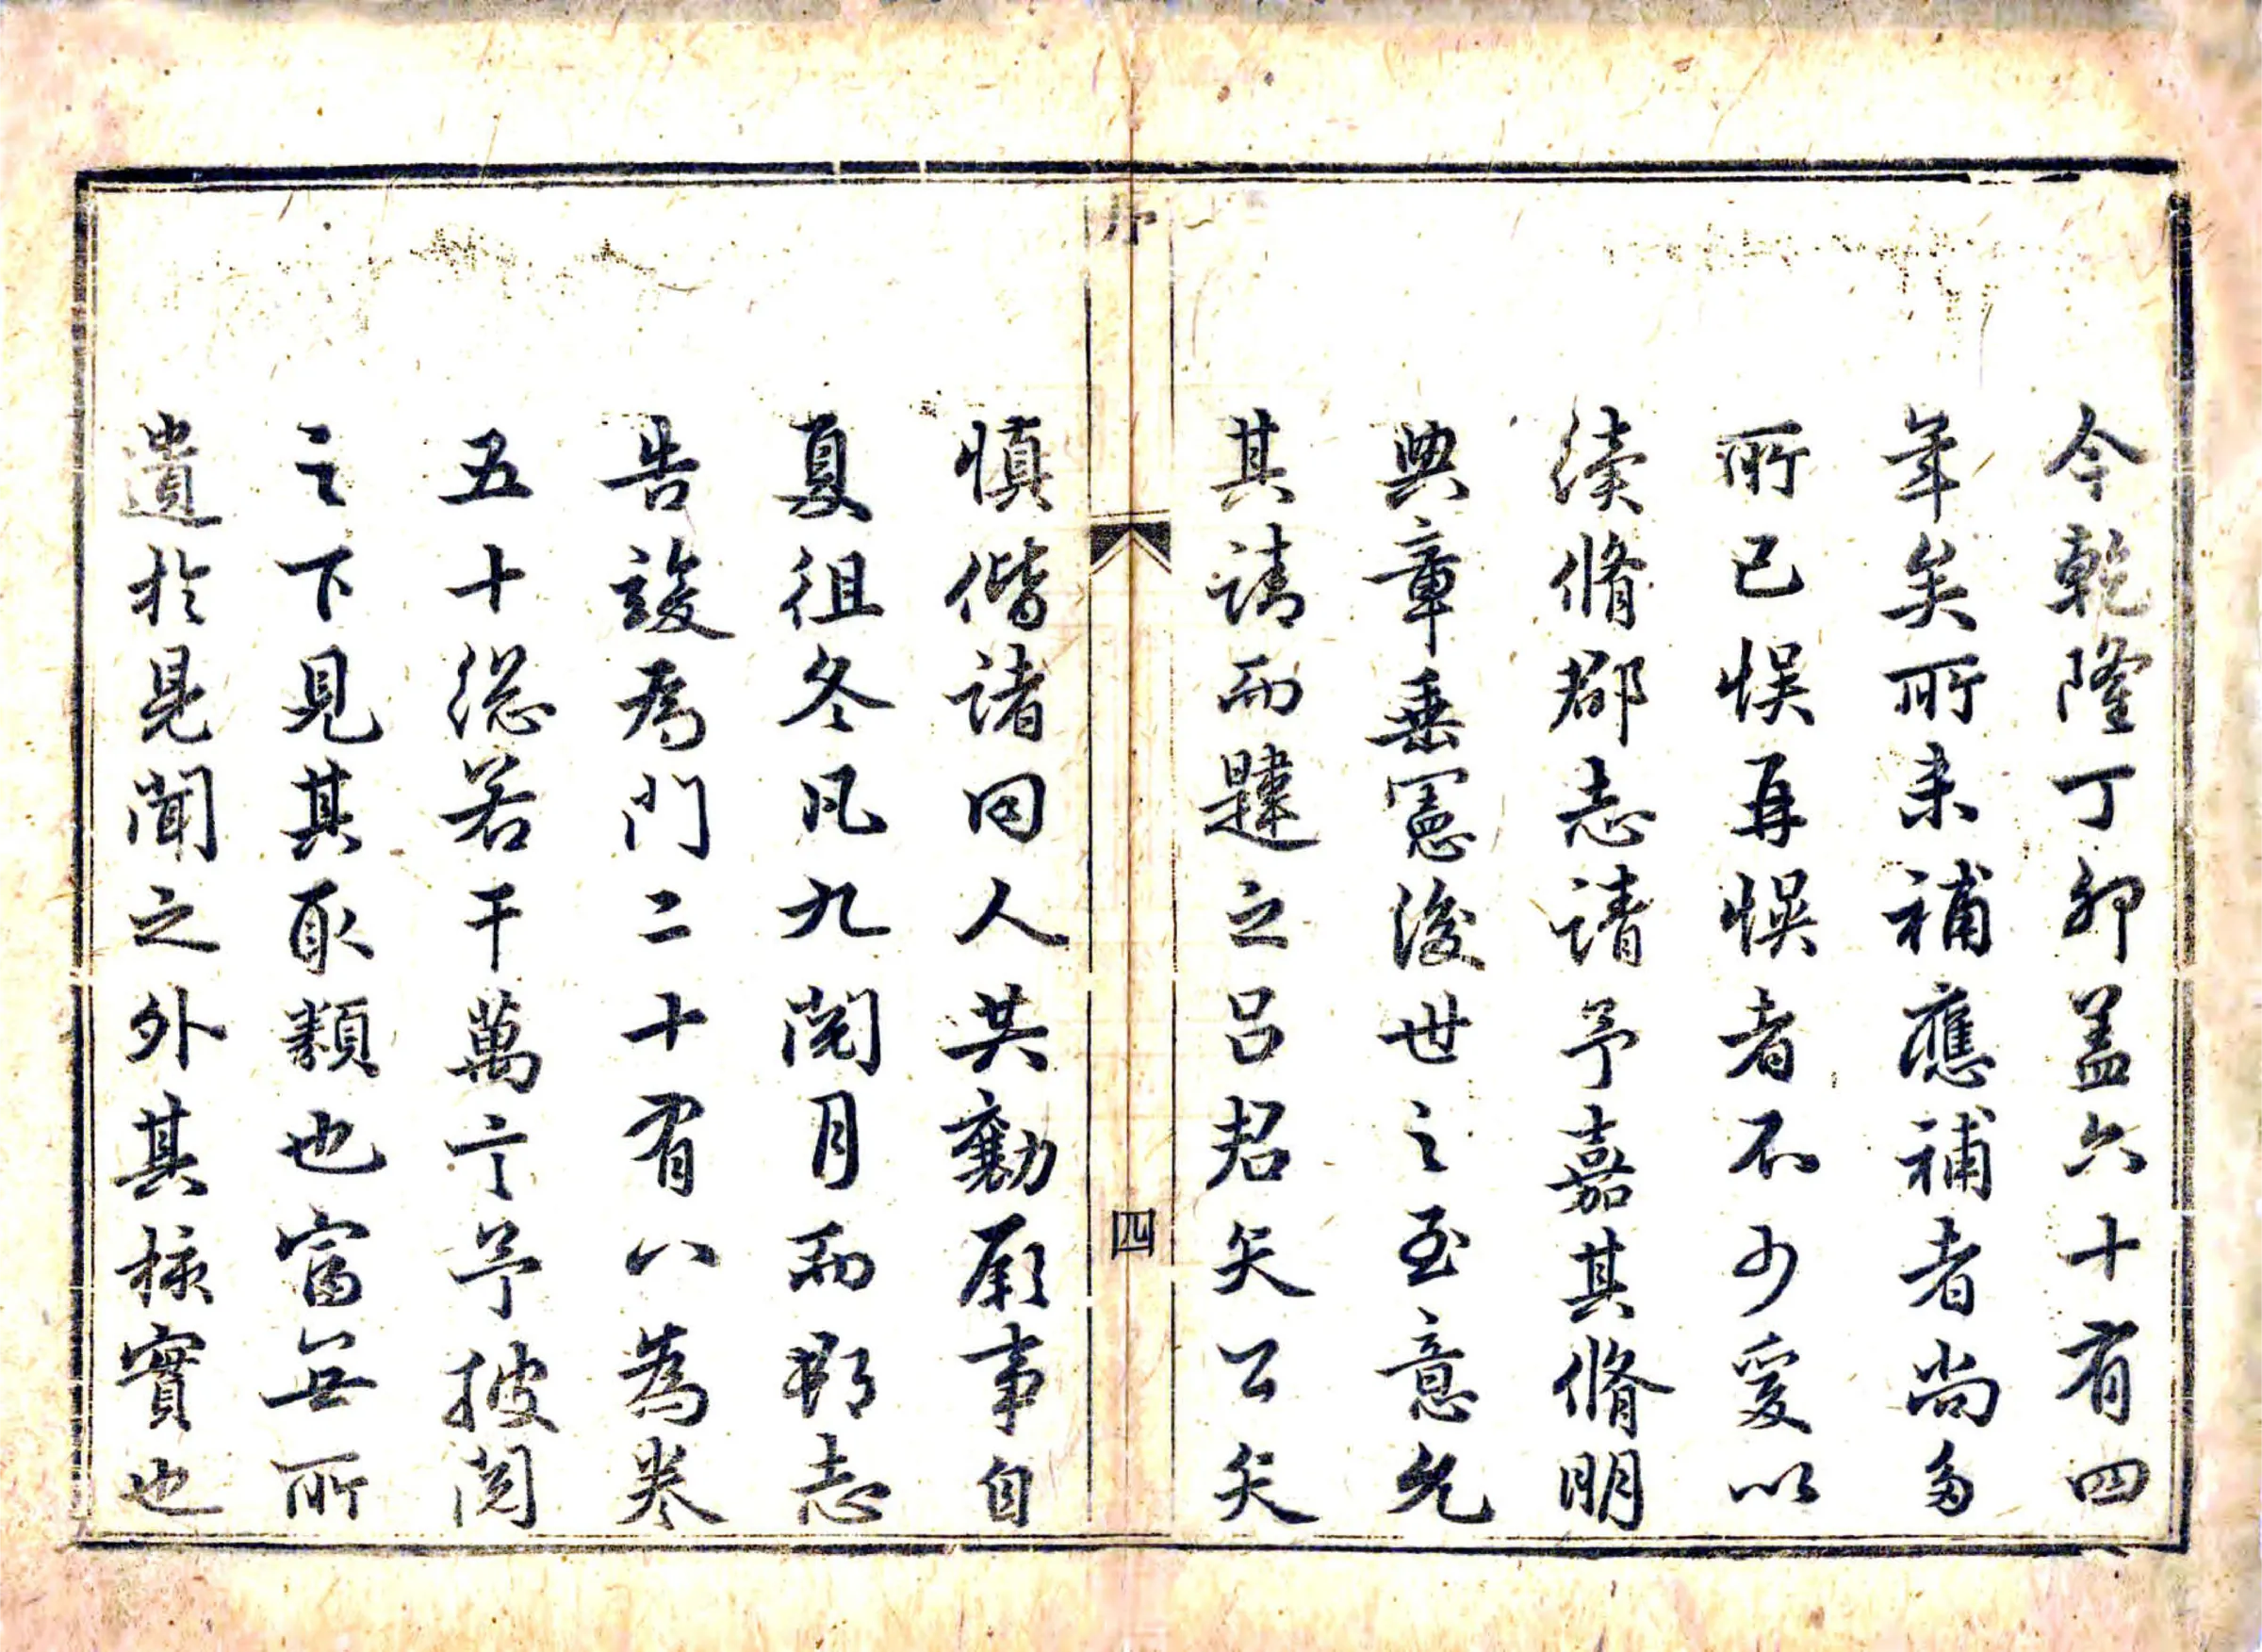 今乾隆丁卯盖六十有四
年矣所未補應補者尚多
所已悞再悞者不少爰以
續脩郡志請予嘉其脩明
典章垂憲後世之至意允
其請而韙之吕君矢公矢
序
四
慎偕諸同人共勷厥事自
夏徂冬凡九閱月而郡志
告竣為門二十有八為卷
五十総若干萬言予披閱
之下見其取類也富無所
遺於見聞之外其核實也